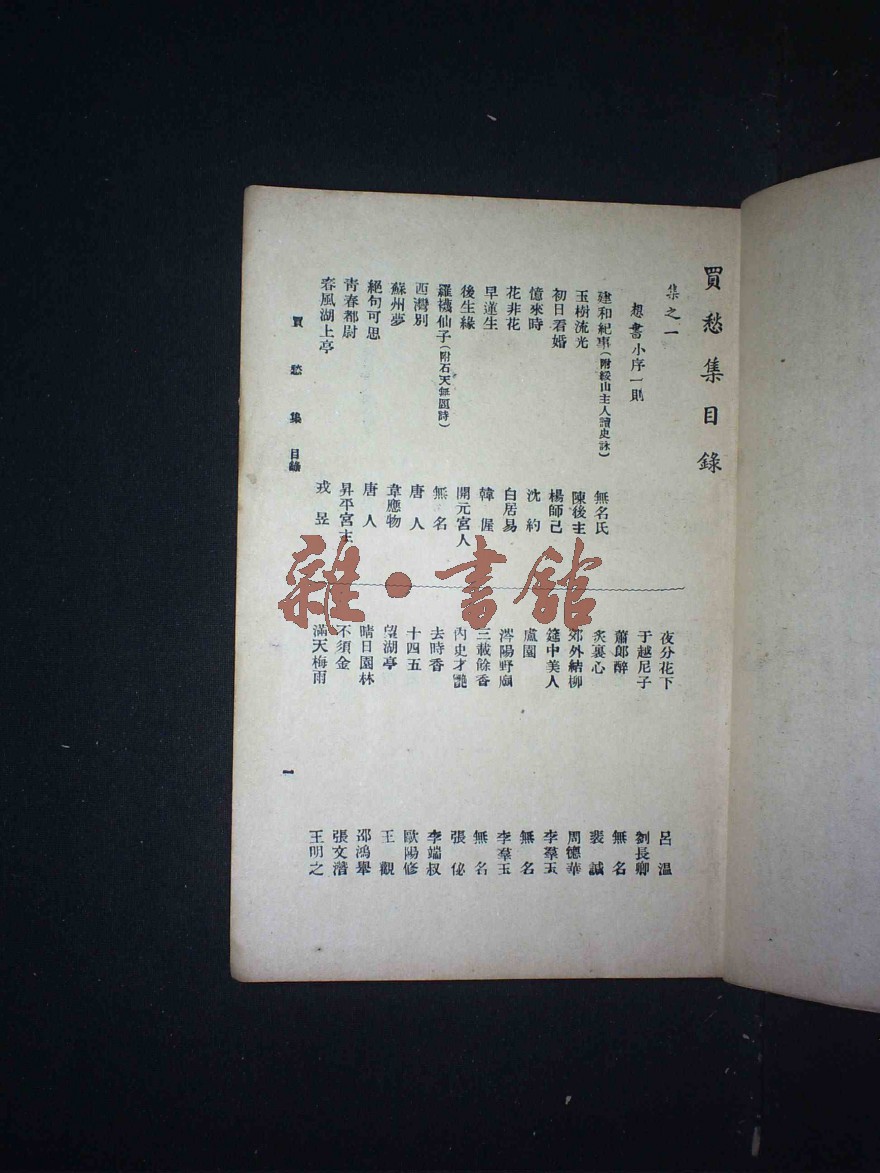 買愁集目錄
集之一
想書小序一則
建和紀事(附綏山主人讀史詠) 無名氏
玉樹流光 陳後主
初日看婚 楊師己
憶來時 沈約
花非花 白居易
早蓮生 韓偓
後生緣 開元宮人
羅襪仙子(附石天無題詩) 無名
西灣別 唐人
蘇州夢 韋應物
絕句可思 唐人
青春都尉 昇平宮主
春風湖上亭 戎昱
夜分花下 呂溫
于越尼子 劉長卿
蕭郎醉 無名
炎裏心 裴誠
郊外結柳 周德華
筵中美人 李羣玉
盧園 無名
涔陽野廟 李羣玉
三載餘香 無名
內史才艷 張佖
去時香 李端叔
十四五 歐陽修
望湖亭 王觀
晴日園林 邵鴻舉
不須金 張文潛
滿天梅雨 王明之
買愁集 目錄
一
雜·書館